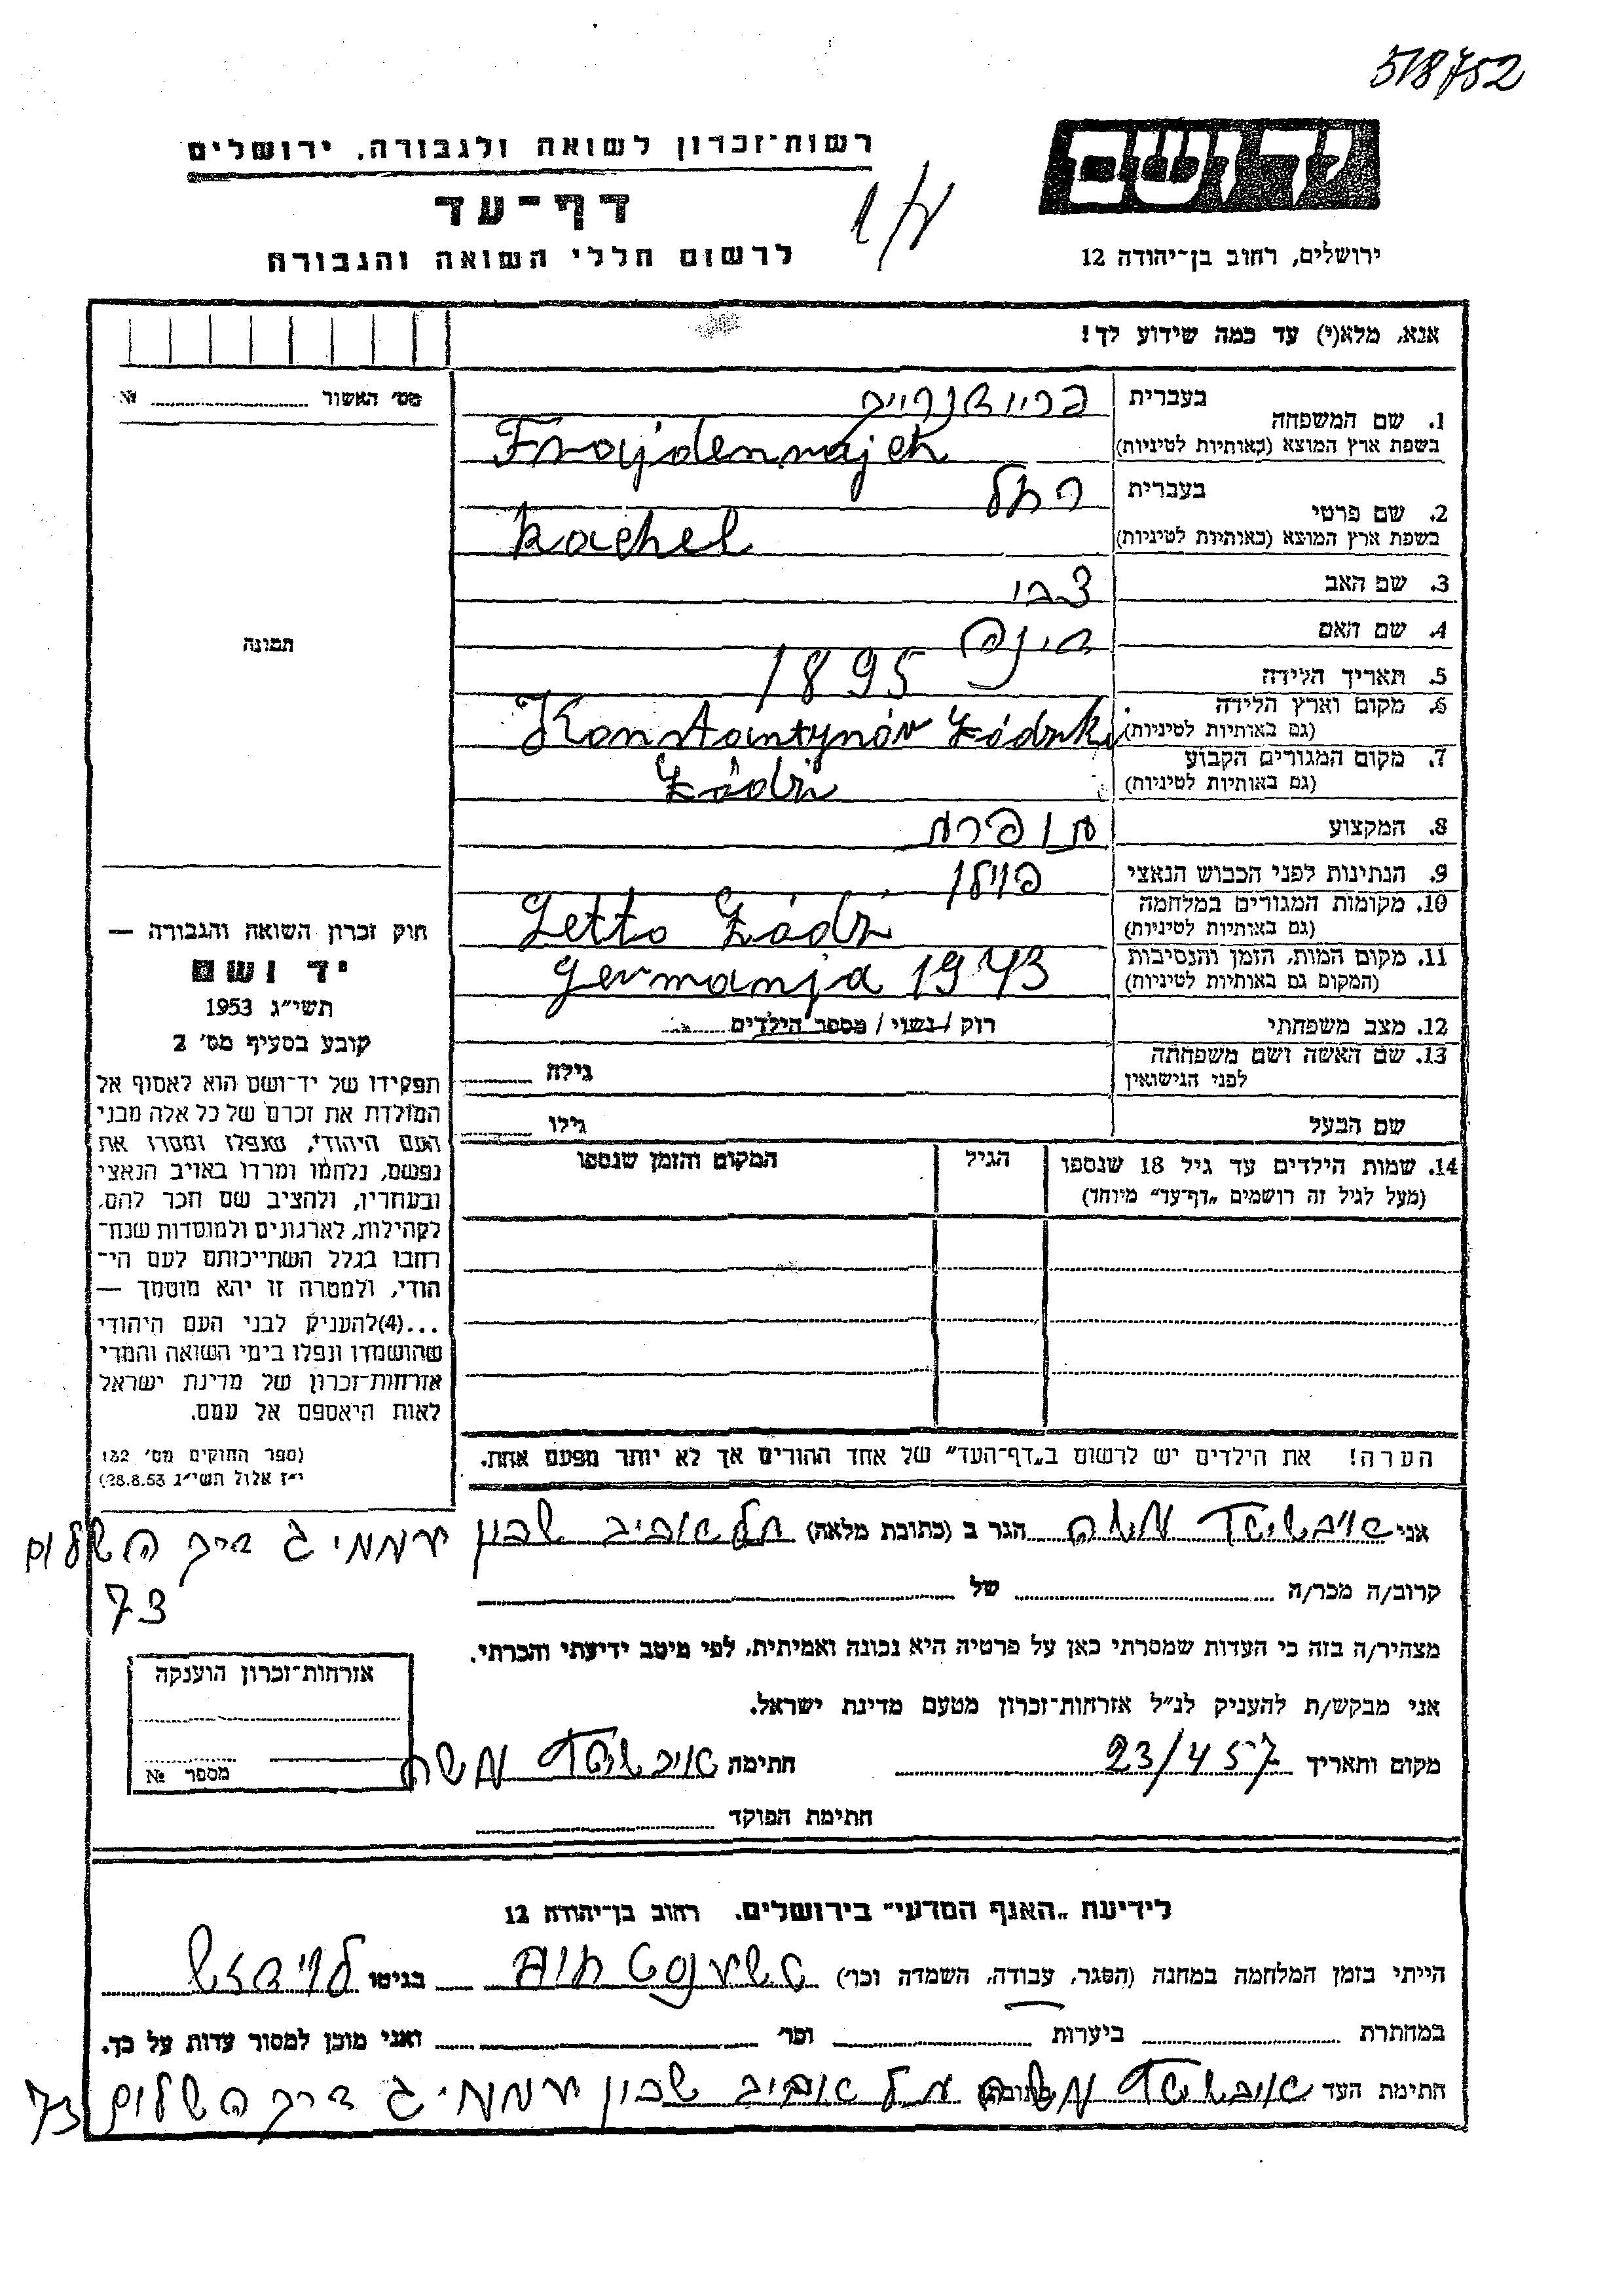 518752
יד ושם
רשות־זכרון לשואה ולגבורה, ירושלים
דף־עד
לרשום חללי השואה והגבורה
ירושלים, רחוב בן־יהודה 12
אנא, מלא(י) עד כמה שידוע לך!
מס׳ האשור № 
1. שם המשפחה בעברית
בשפת ארץ המוצא (באותיות לטיניות) Frajdenrajch
2. שם פרטי בעברית רחל
בשפת ארץ המוצא (באותיות לטיניות) Rachel
3. שם האב צבי
4. שם האם
5. תאריך הלידה 1895
6. מקום וארץ הלידה
(גם באותיות לטיניות) Konstantynów Łódzki
7. מקום המגורים הקבוע
(גם באותיות לטיניות) Łódź
8. המקצוע תופרת
9. הנתינות לפני הכבוש הנאצי פוילן
10. מקומות המגורים במלחמה
(גם באותיות לטיניות) Getto Łódź
11. מקום המות, הזמן והנסיבות
(המקום גם באותיות לטיניות) Germanja 1943
12. מצב משפחתי רוק / נשוי / מספר הילדים
13. שם האשה ושם משפחתה
לפני הנישואין גילה
שם הבעל גילו
14. שמות הילדים עד גיל 18 שנספו הגיל המקום והזמן שנספו
(מעל לגיל זה רושמים „דף־עד” מיוחד)
הערה! את הילדים יש לרשום ב„דף־העד” של אחד ההורים אך לא יותר מפעם אחת.
תמונה
חוק זכרון השואה והגבורה —
יד ושם
תשי״ג 1953
קובע בסעיף מס׳ 2
תפקידו של יד־ושם הוא לאסוף אל
המולדת את זכרם של כל אלה מבני
העם היהודי, שנפלו ומסרו את
נפשם, נלחמו ומרדו באויב הנאצי
ובעוזריו, ולהציב שם וזכר להם,
לקהילות, לארגונים ולמוסדות שנח־
רבו בגלל השתייכותם לעם הי־
הודי, ולמטרה זו יהא מוסמך —
...(4)להעניק לבני העם היהודי
שהושמדו ונפלו בימי השואה והמרי
אזרחות־זכרון של מדינת ישראל
לאות היאספם אל עמם.
(ספר החוקים מס׳ 132
י״ז אלול תשי״ג 28.8.53)
אני משה הגר ב (כתובת מלאה) תל אביב שכון עממי ג דרך השלום
73
קרוב/ה מכר/ה של
מצהיר/ה בזה כי העדות שמסרתי כאן על פרטיה היא נכונה ואמיתית, לפי מיטב ידיעתי והכרתי.
אני מבקש/ת להעניק לנ״ל אזרחות־זכרון מטעם מדינת ישראל.
מקום ותאריך 23/4 57 חתימה משה
חתימת הפוקד
אזרחות־זכרון הוענקה
מספר №
לידיעת „האגף המדעי” בירושלים, רחוב בן־יהודה 12
הייתי בזמן המלחמה במחנה (הסגר, עבודה, השמדה וכו׳) בגיטו
במחתרת ביערות וכו׳ ואני מוכן למסור עדות על כך.
חתימת העד משה (כתובת) תל אביב שכון עממי ג דרך השלום 73